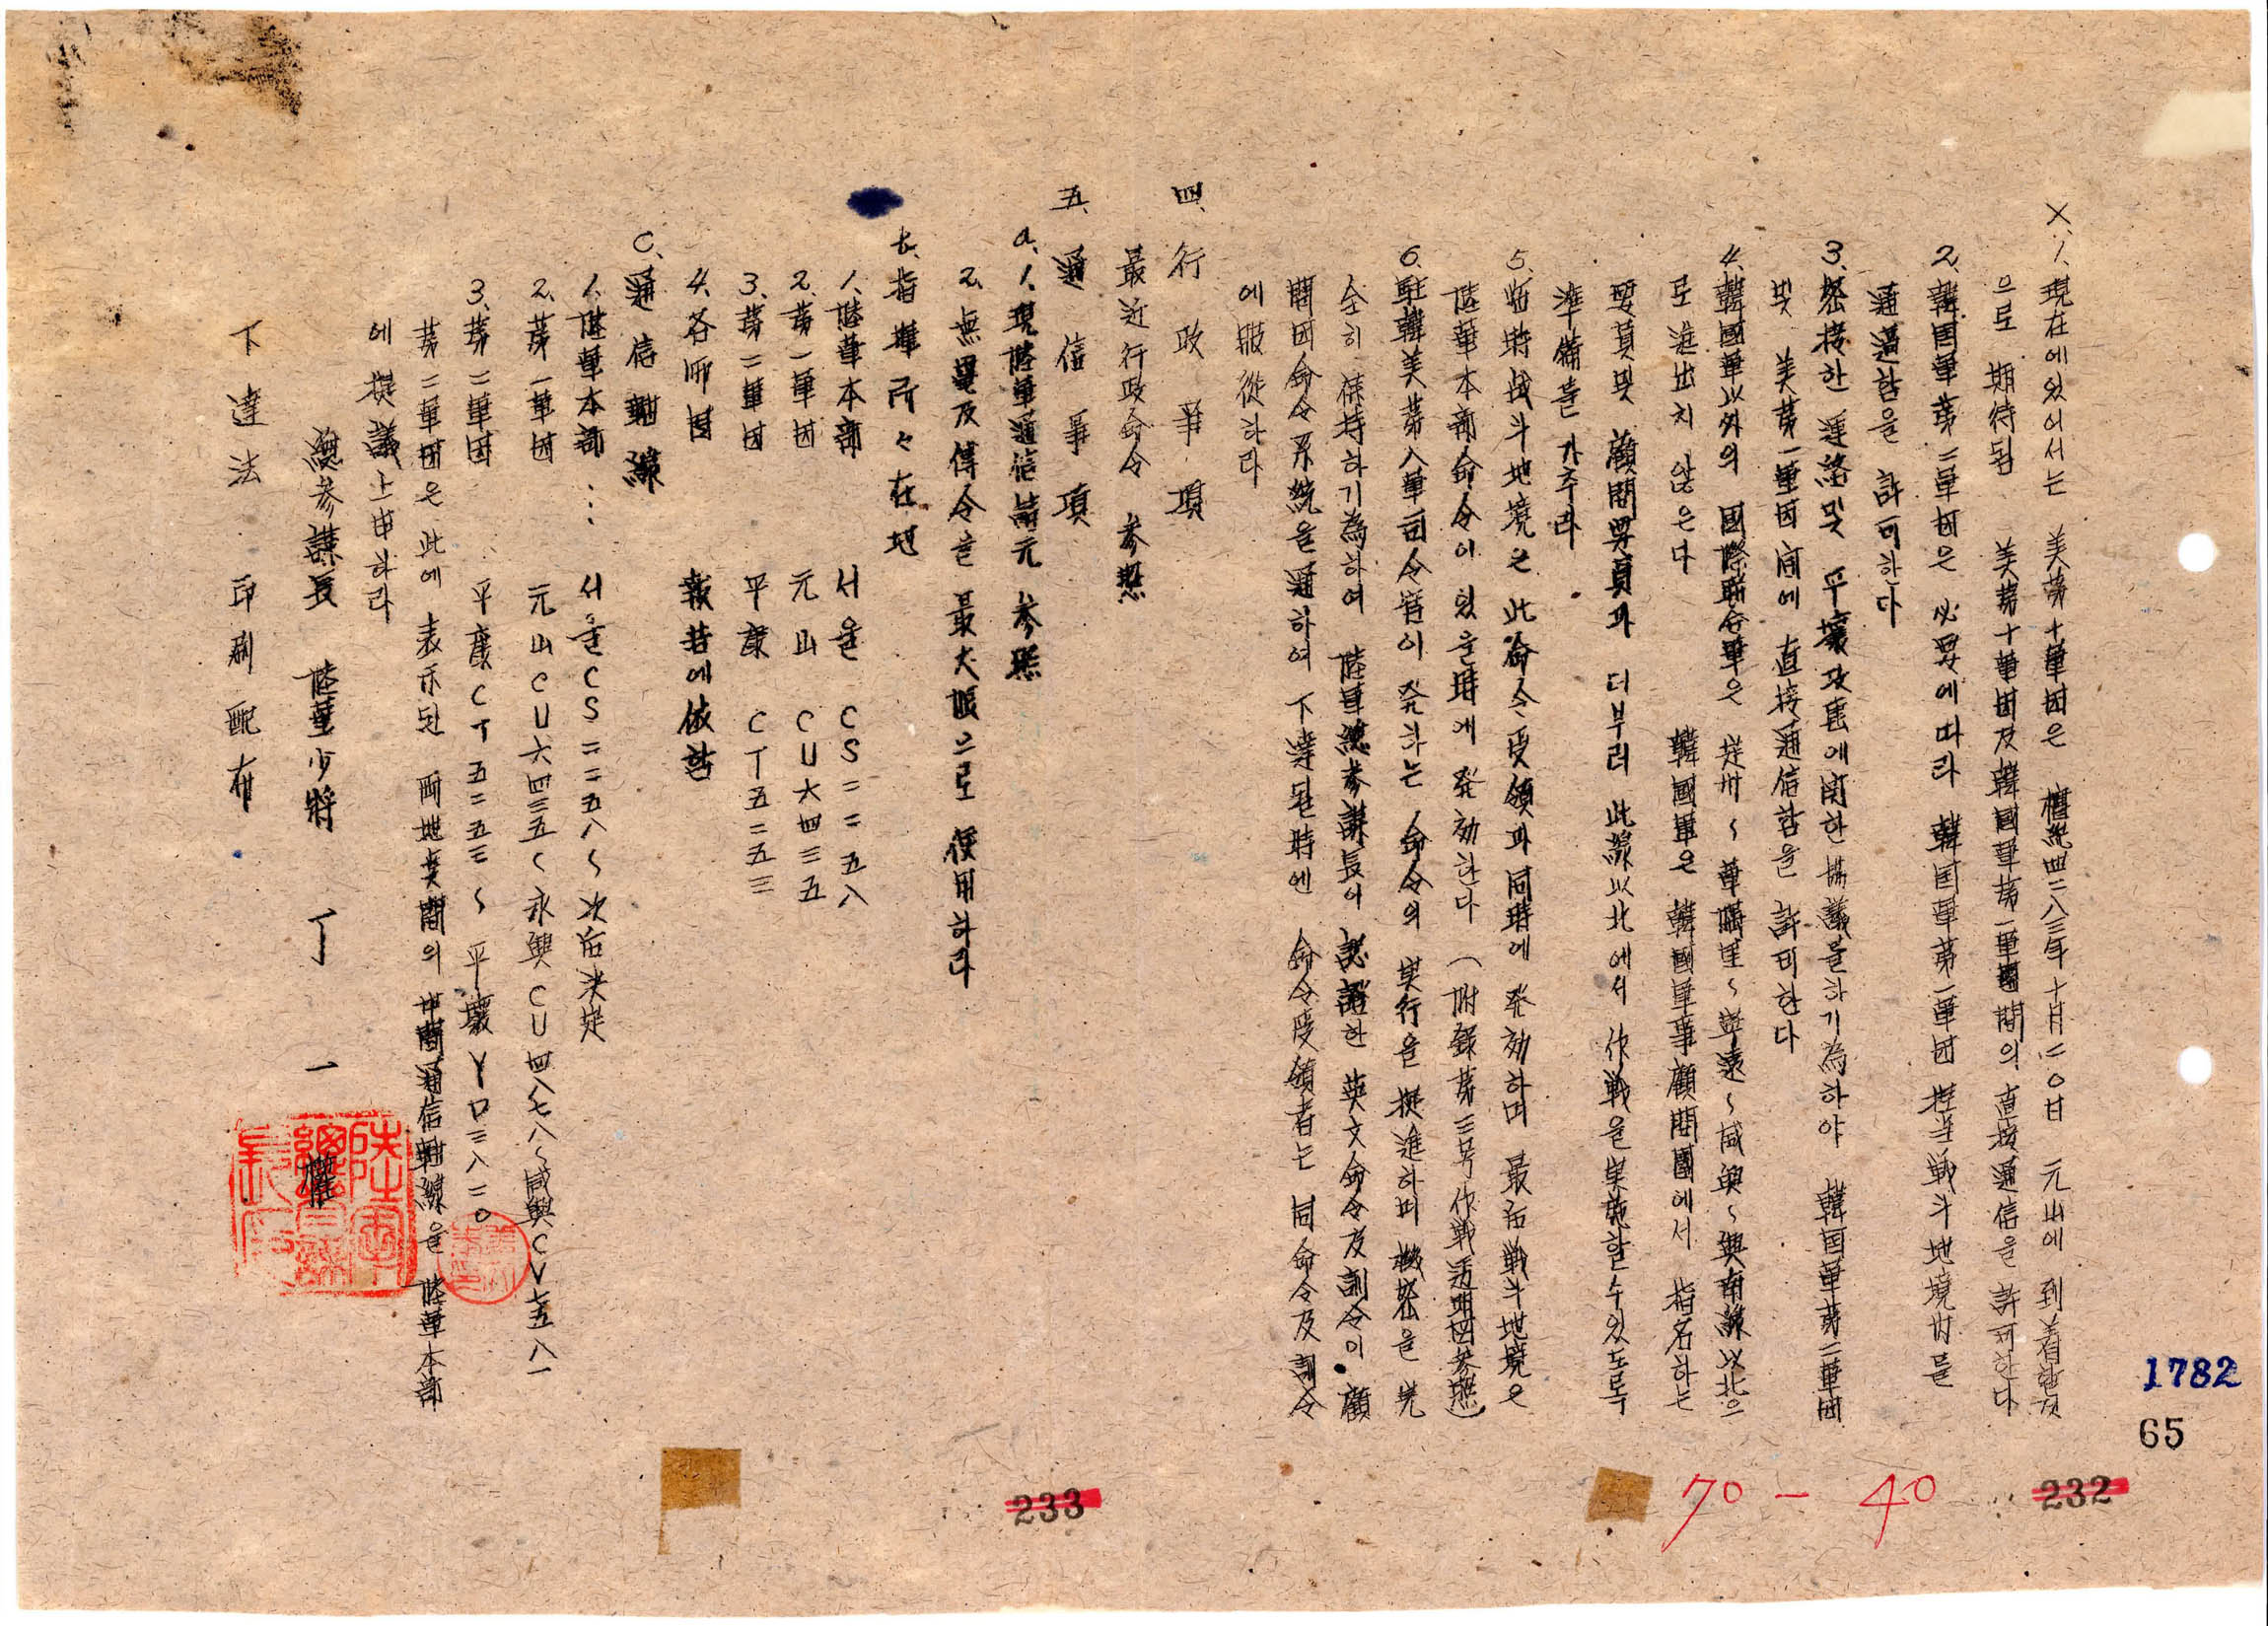 X. 1. 現在에있어서는 美第十軍団은 檀紀四二八三年十月二〇日 元山에 到着할것
으로 期待됨 美第十軍団及韓國軍第一軍團間의 直接通信을 許可한다
2. 韓国軍第二軍団은 必要에따라 韓国軍第一軍団 担当戦斗地境内를
通過함을 許可하다
3. 緊接한 連絡및 平壤攻擊에関한 協議를하기為하야 韓国軍第二軍団
및 美第一軍団 间에 直接通信함을 許可한다
4. 韓國軍以外의 國際聯合軍은 定州~軍隅里~寧遠~咸興~興南線以北으
로 進出치 않은다 韓國軍은 韓國軍事顧問團에서 指名하는
要員및 顧問要員과 더부러 此線以北에서 作戦을実施할수있도록
準備를 가추라
5. 臨時战斗地境은 此命令受領과同時에 発効하며 最后戦斗地境은
陸軍本部命令이 있을時에 発効한다 (附錄第三号作戦透明図参照)
6. 駐韓美第八軍司令官이 発하는 命令의 実行을 促進하며 機密을 完
全히 保持하기為하여 陸軍總参謀長이 認證한 英文命令及訓令이 顧
問団命令系統을通하여 下達된時엔 命令受領者는 同命令及訓令
에服從하라
四、行政事項
最近行政命令 参照
五、通信事項
a. 1. 現陸軍通信諸元 参照
2. 無電及傳令을 最大限으로 使用하라
b. 指揮所々在地
1. 陸軍本部 서울 CS二二五八
2. 第一軍団 元山 CU六四三五
3. 第二軍団 平康 CT五二五三
4. 各師団 報告에依함
C. 通信軸線
1. 陸軍本部 ... 서울CS二二五八~次后決定
2. 第一軍団 元山CU六四三五~永興CU四八七八~咸興CV七五八一
3. 第二軍団 平康CT五二五三~平壤YD三八二〇
第二軍団은 此에 表示된 両地点間의 中間通信軸線을 陸軍本部
에 提議上申하라
總参謀長 陸軍少將 丁一權
下達法 印刷配布
1782
65
232
70 - 40
233